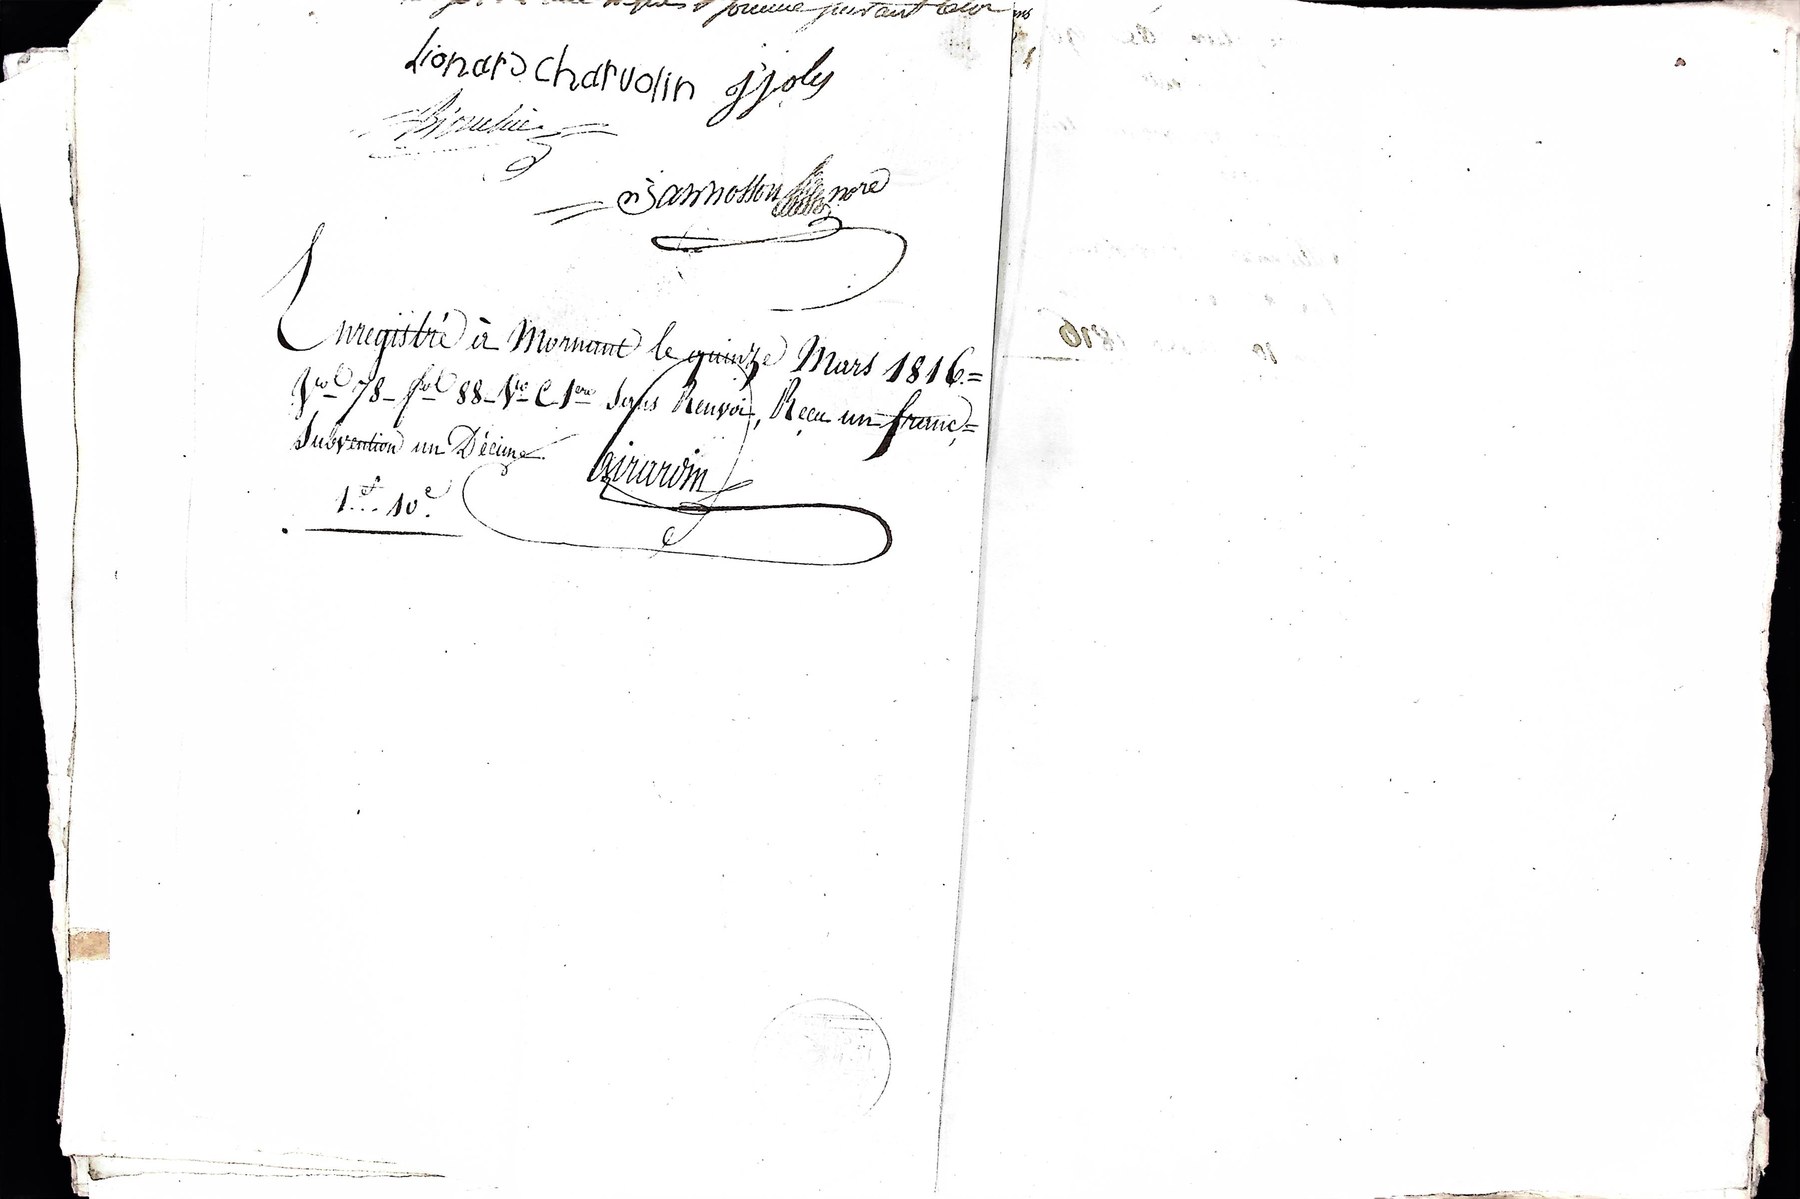 somme suivant
Lionard charvolin jjoly
nore
Enregistré à Mornant le quinze Mars 1816 =
Vol 78 - fol 88 - Vo C 1ere Sans Renvoi, Reçu un franc =
Subvention un Décime.
Girardin
1f... 10c.